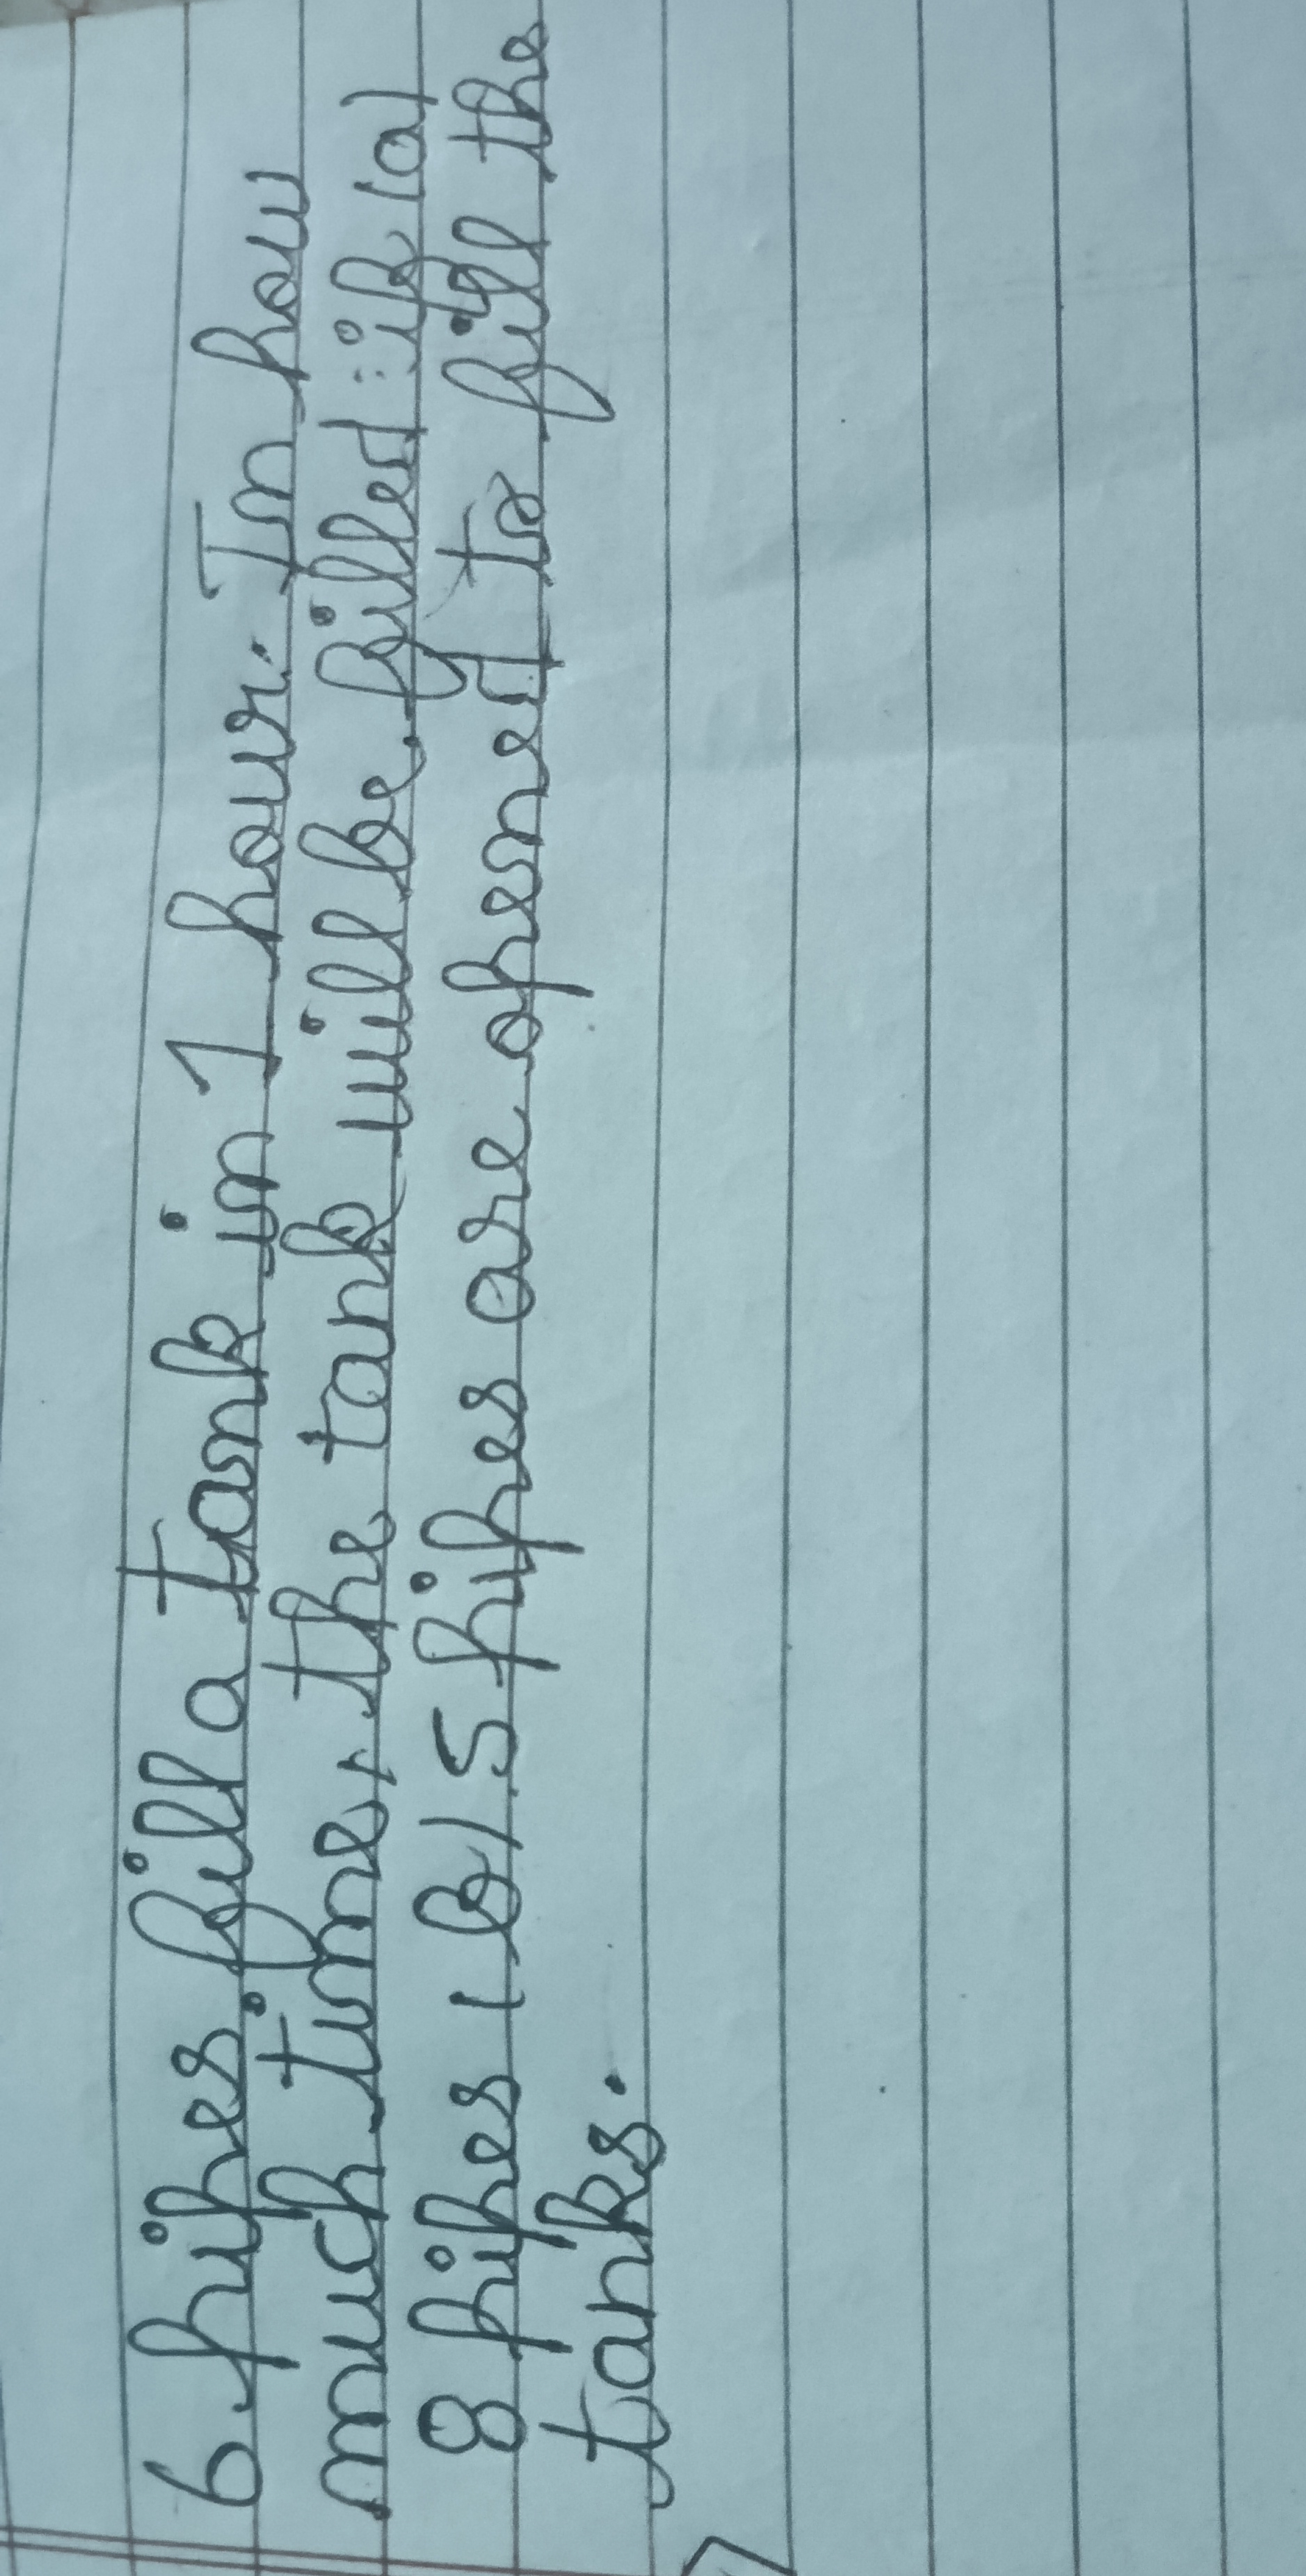 6 pipes fill a tank in 1 hour. In how
much time, the tank will be filled : if (a)
8 pipes (B) 5 pipes are opened to fill the
tanks.